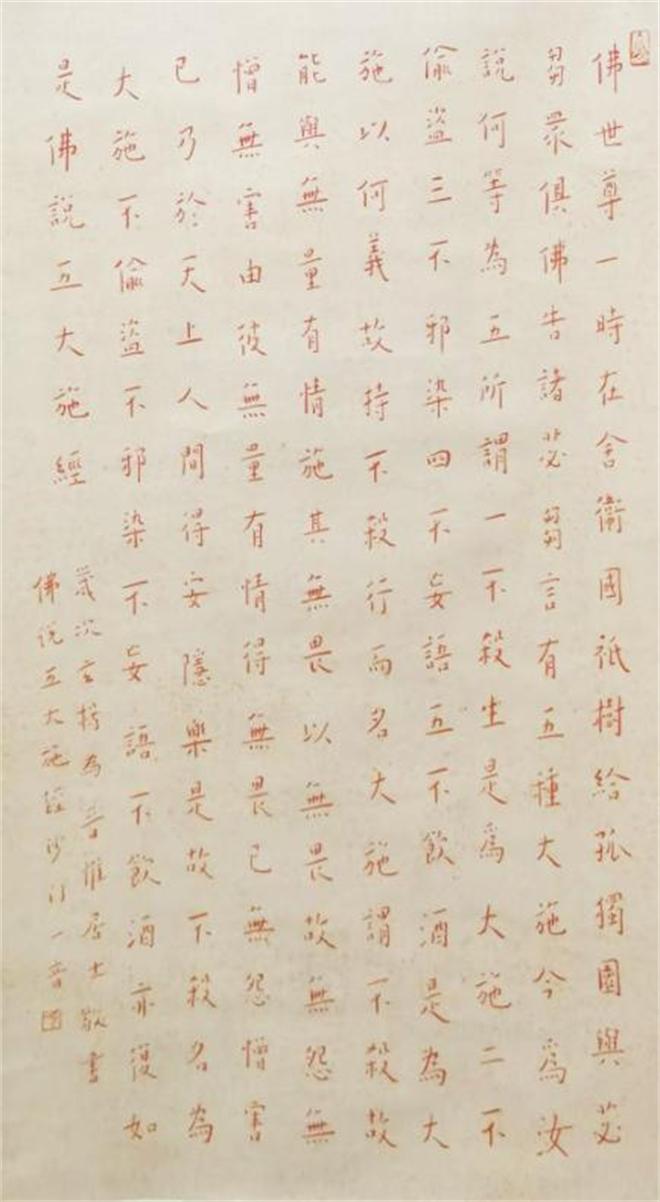 佛世尊一時在舍衛國祇樹給孤獨園與苾
芻眾俱佛告諸苾芻言有五種大施今為汝
說何等為五所謂一不殺生是為大施二不
偷盜三不邪染四不妄語五不飲酒是為大
施以何義故持不殺行而名大施謂不殺故
能與無量有情施其無畏以無畏故無怨無
憎無害由彼無量有情得無畏已無怨憎害
已乃於天上人間得安隱樂是故不殺名為
大施不偷盜不邪染不妄語不飲酒亦復如
是佛說五大施經
歲次玄枵為居士敬書
佛說五大施經沙門一音